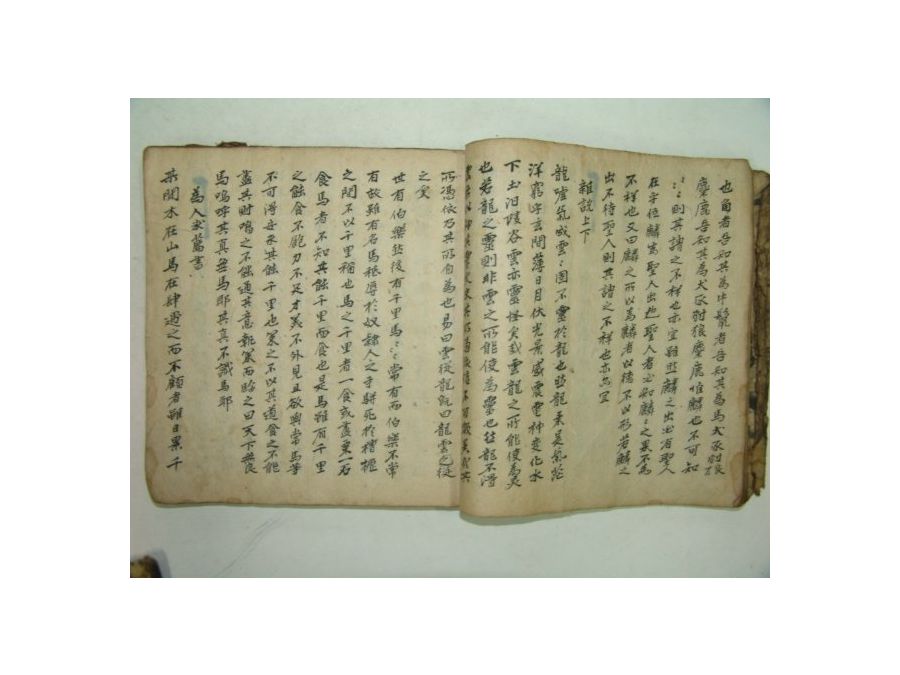 也角者吾知其為牛鬣者吾知其為馬犬豕豺良
麋鹿吾知其為犬豕豺狼麋鹿惟麟也不可知
〻〻則其謂之不祥也亦宜雖然麟之出必有聖人
在乎位麟為聖人出也聖人者必知麟〻之果不為
不祥也又曰麟之所以為麟者以德不以形若麟之
出不待聖人則其謂之不祥也亦宜
雜說上下
龍噓氣成雲〻固不靈於龍也然龍乘是氣茫
洋窮乎玄間薄日月伏光景感震電神變化水
下土汨陵谷雲亦靈怪矣哉雲龍之所能使為灵
也若龍之靈則非雲之所能使為靈也然龍不得
雲無以神其靈矣失其所憑依信不可歟異哉其
所憑依乃其所自為也易曰雲從龍旣曰龍雲從
之矣
世有伯樂然後有千里馬〻〻常有而伯樂不常
有故雖有名馬秪辱於奴隸人之手騈死於槽櫪
之間不以千里稱也馬之千里者一食或盡粟一石
食馬者不知其能千里而食也是馬雖有千里
之能食不飽力不足才美不外見且欲與常馬等
不可得安求其能千里也策之不以其道食之不能
盡其材鳴之不能通其意執策而臨之曰天下無良
馬嗚呼其真無馬耶其真不識馬耶
為人求薦書
某聞木在山馬在肆遇之而不顧者雖日累千